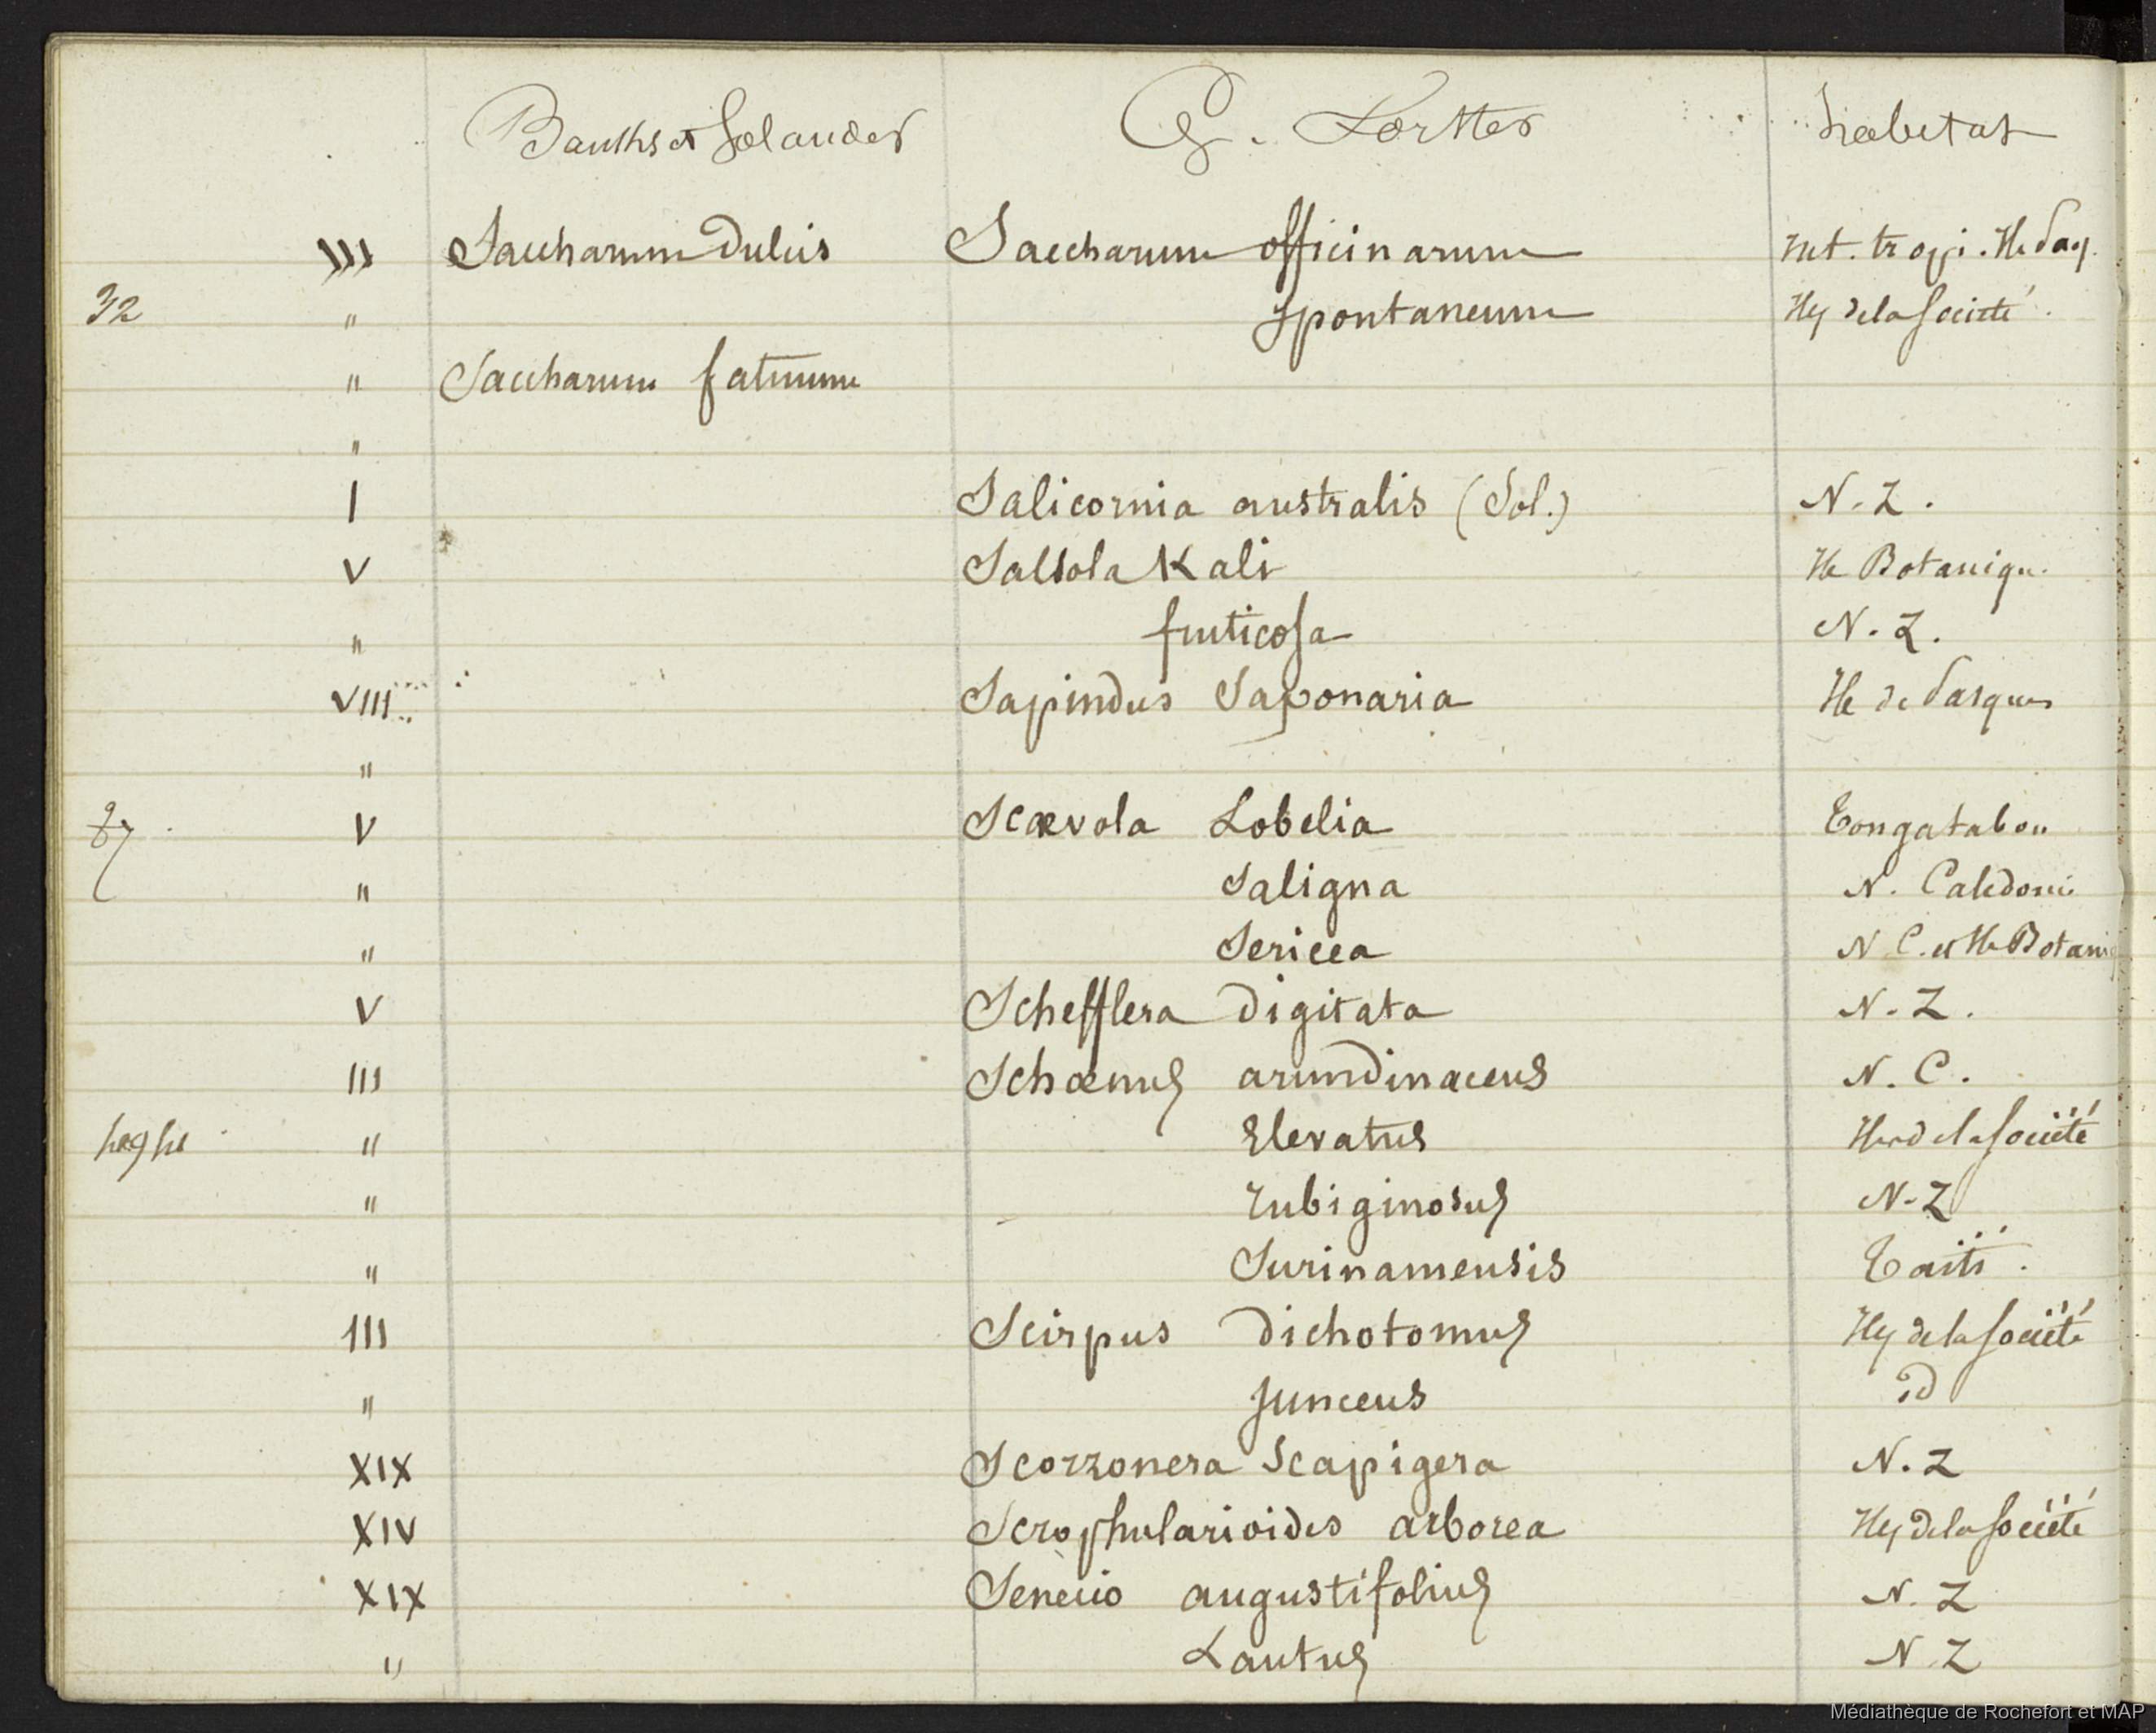 Banks et Solander G. Forster habitat
III Saccharum Dulcis Saccharum officinarum int. tropi. Ile Paq.
32 " spontaneum Iles de la Société.
" Saccharum fatuum
"
I Salicornia australis (Sol.) N. Z.
V Salsola Kali Ile Botaniqu.
" fruticosa N. Z.
VIII Sapindus Saponaria Ile de Pasques
"
V Scævola Lobelia Tongatabou
" Saligna N. Caledoni
" Sericea N C. et Ile Botaniq
V Schefflera Digitata N. Z.
III Schœnus arundinaceus N. C.
" Elevatus Iles de la Société
" rubiginosus N-Z
" Surinamensis Taïti.
III Scirpus dichotomus Iles de la Société
" Junceus id
XIX Scorzonera Scapigera N. Z
XIV Scrophularioides arborea Iles de la Société
XIX Senecio augustifolius N. Z
" Lautus N Z
Médiathèque de Rochefort et MAP